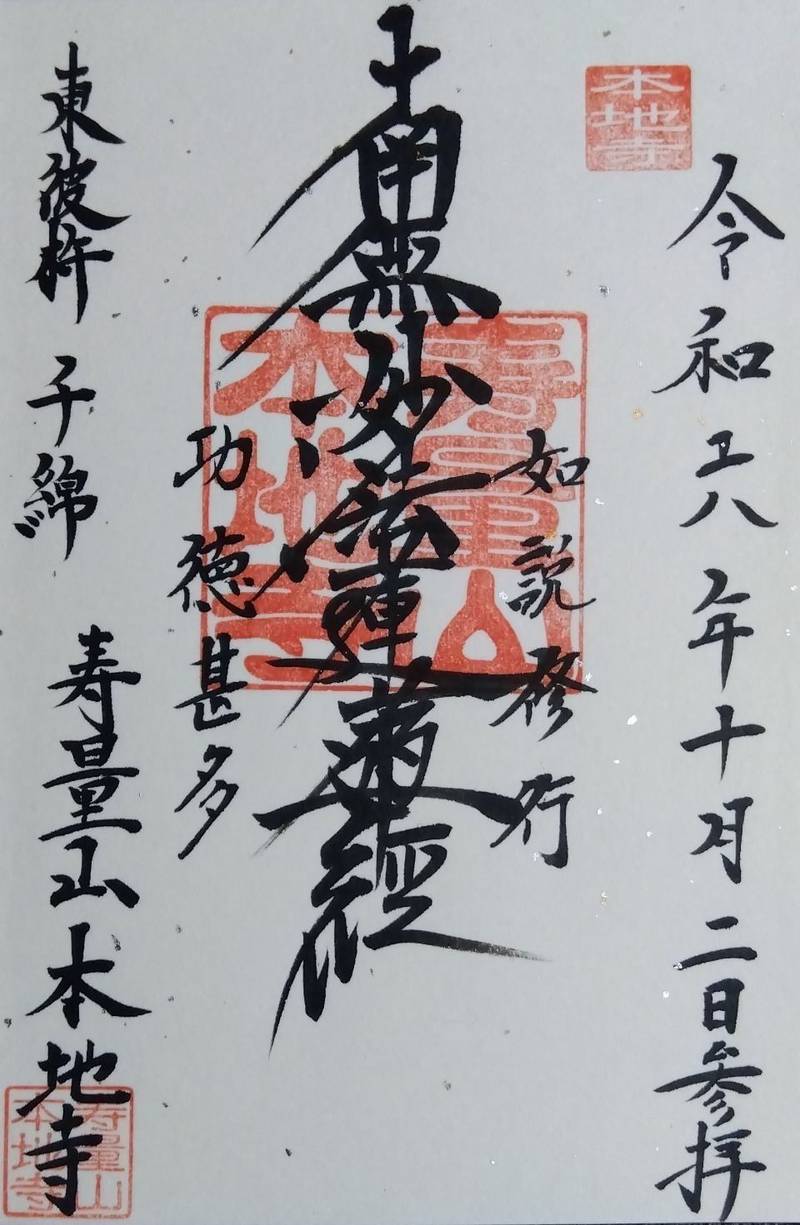 本地寺
令和六年十月二日参拝
如説修行
南無妙法蓮華經
功徳甚多
寿量山
本地寺
東彼杵 千綿 寿量山本地寺
寿量山
本地寺